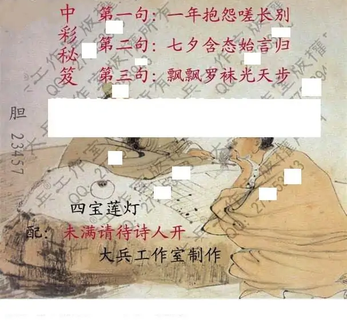 中彩秘笈
第一句：一年抱怨嗟长别
第二句：七夕含态始言归
第三句：飘飘罗袜光天步
胆 23457
四宝莲灯
配：未满请待诗人开
大兵工作室制作